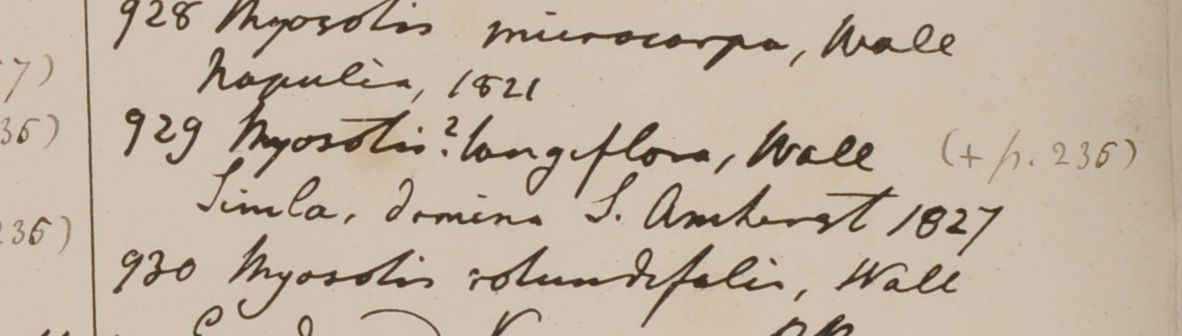 7)
928 Myosotis microcarpa, Wall
Napulia, 1821
36)
929 Myosotis? longiflora, Wall (+ p. 236)
Simla, domina S. Amherst 1827
236)
930 Myosotis rotundifolia, Wall